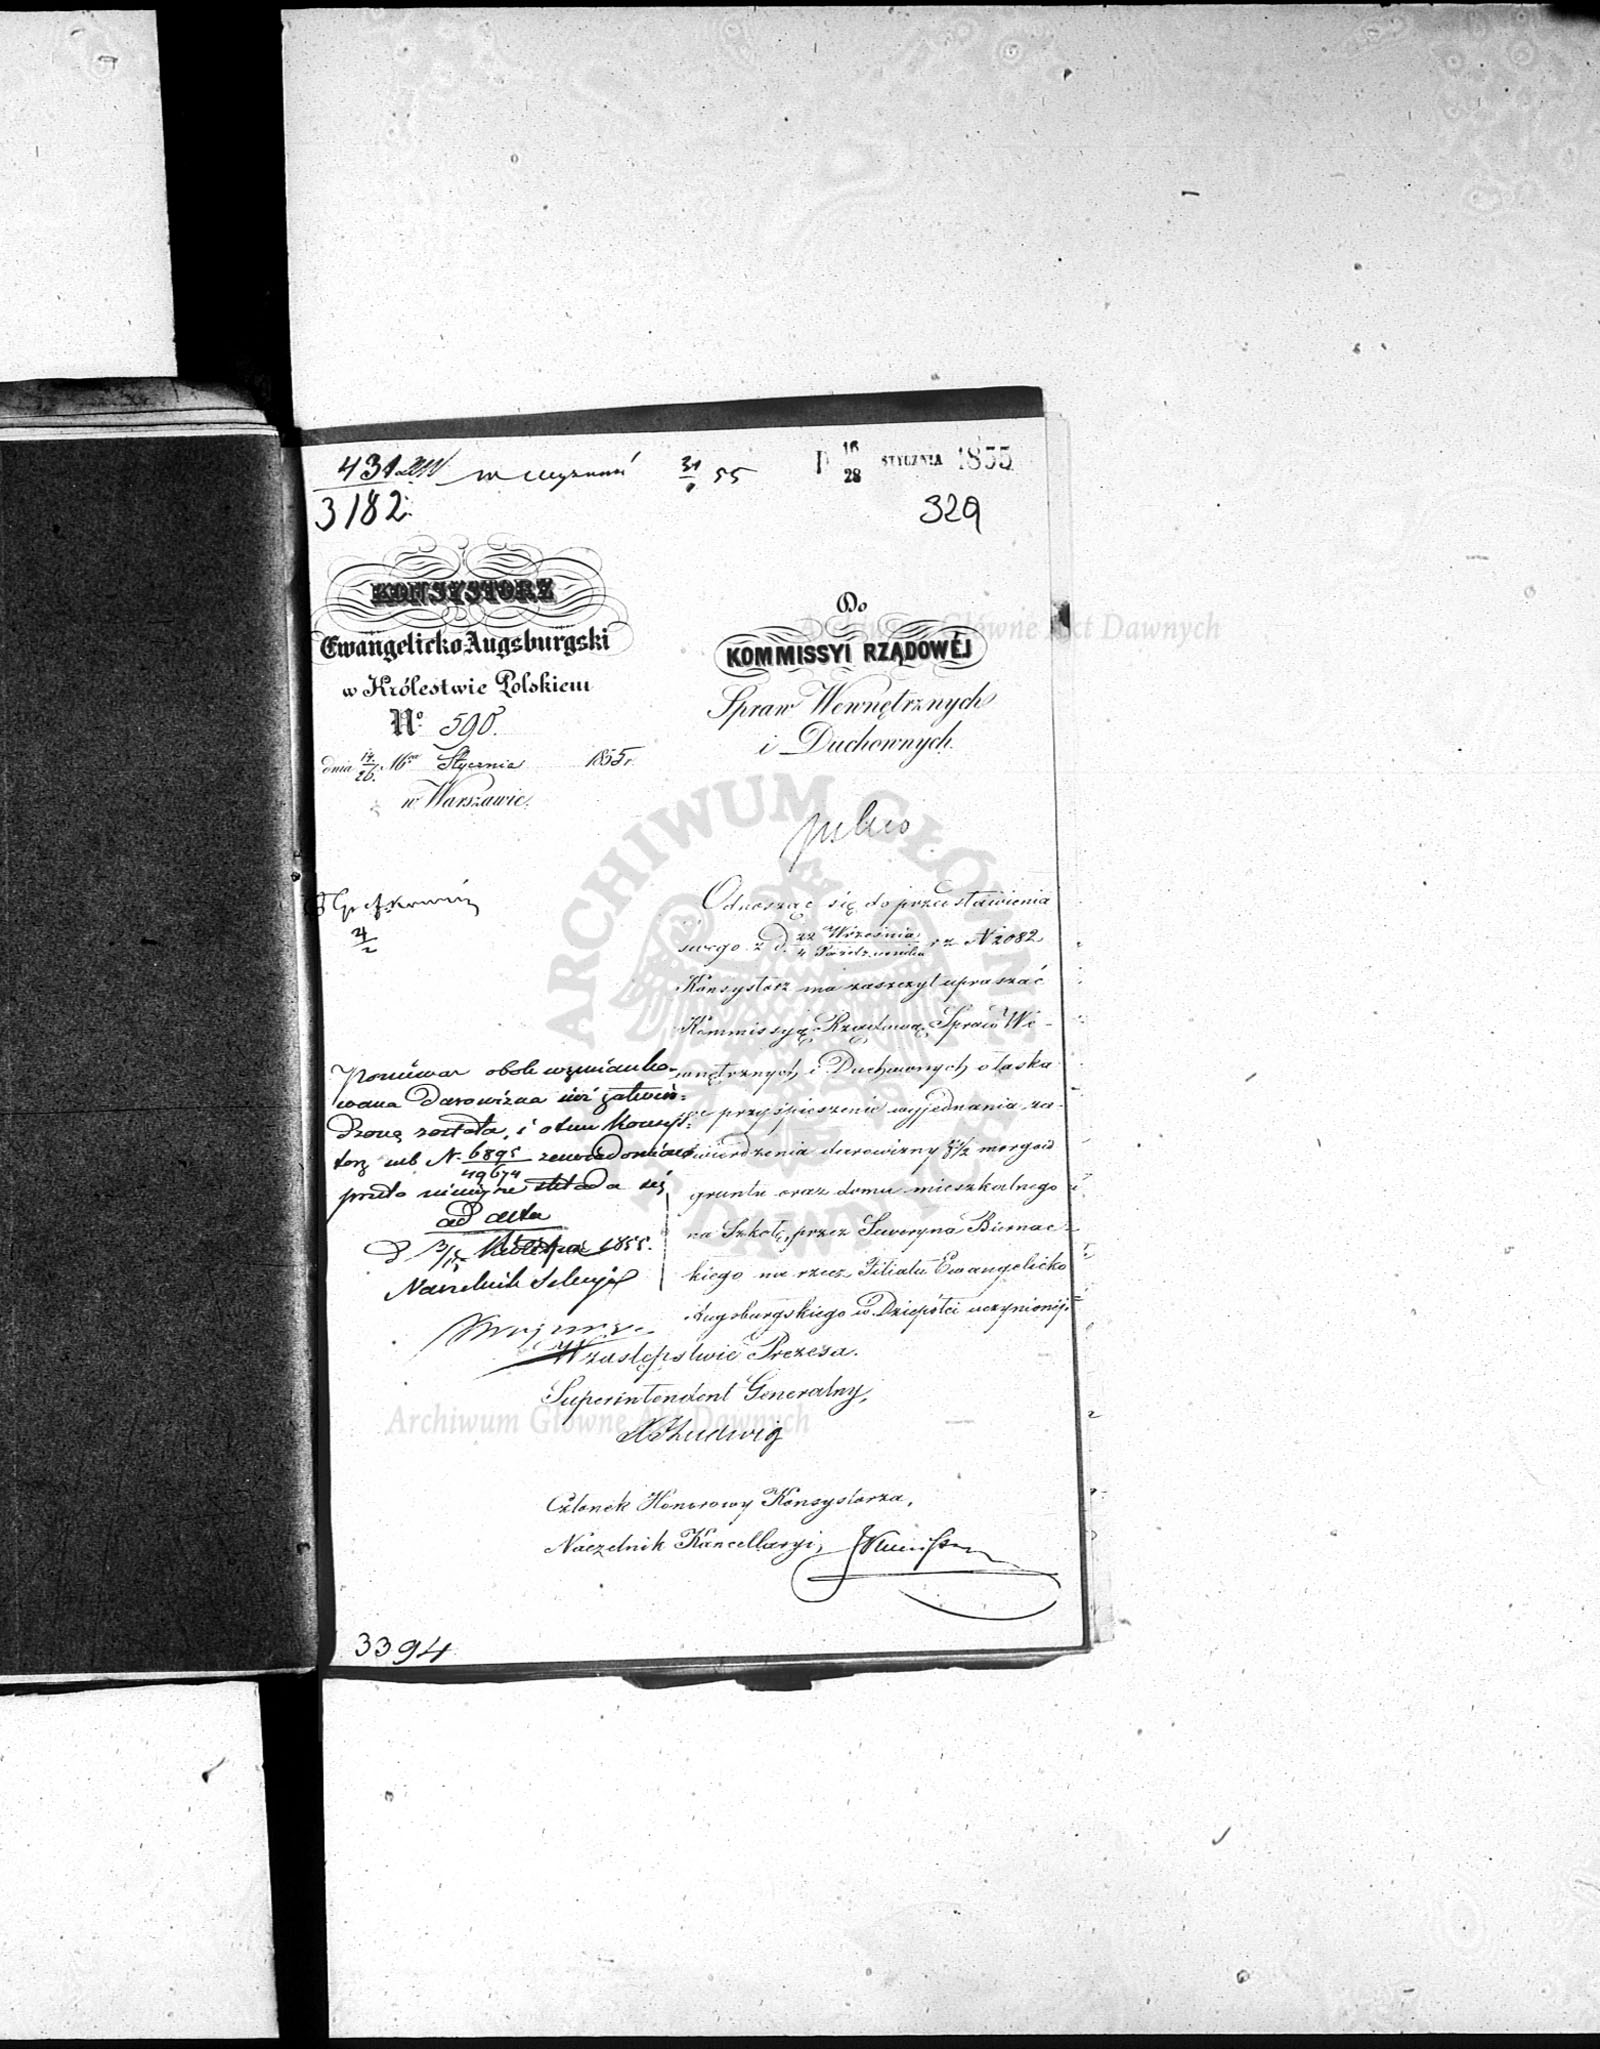 431
3182
31 55
D 16/28 STYCZNIA 1855
329
KONSYSTORZ
Ewangelicko-Augsburgski
w Królestwie Polskiem
No 590.
dnia 14/26 Stycznia 1855 r.
w Warszawie.
Do
KOMMISSYI RZĄDOWÉJ
Spraw Wewnętrznych
i Duchownych.
pilno
4/2
Odnosząc się do przedstawienia
swego z d. 22 Września / 4 Października r z N 2082
Konsystorz ma zaszczyt upraszać
Kommissyą Rządową Spraw We-
wnętrznych i Duchownych o łaska-
we przyśpieszenie wyjednania za-
twierdzenia darowizny 8 1/2 morgów
gruntu oraz domu mieszkalnego
na Szkołę, przez Seweryna Biernac-
kiego na rzecz Filiału Ewangelicko
Augsburgskiego w Dziepółci uczynionej.
Ponieważ obok wzmianko-
wana darowizna już zatwier-
dzoną została, i o tem Konsys-
torz wb N. 6895/49674 zawiadomiono
przeto niniejsze składa się
ad acta
D 3/15 1855.
Naczelnik Sekcyi
W zastępstwie Prezesa.
Superintendent Generalny,
Ludwig
Członek Honorowy Konsystorza,
Naczelnik Kancellaryi,
3394
ARCHIWUM GŁÓWNE AKT DAWNYCH
Archiwum Główne Akt Dawnych
Archiwum Główne Akt Dawnych